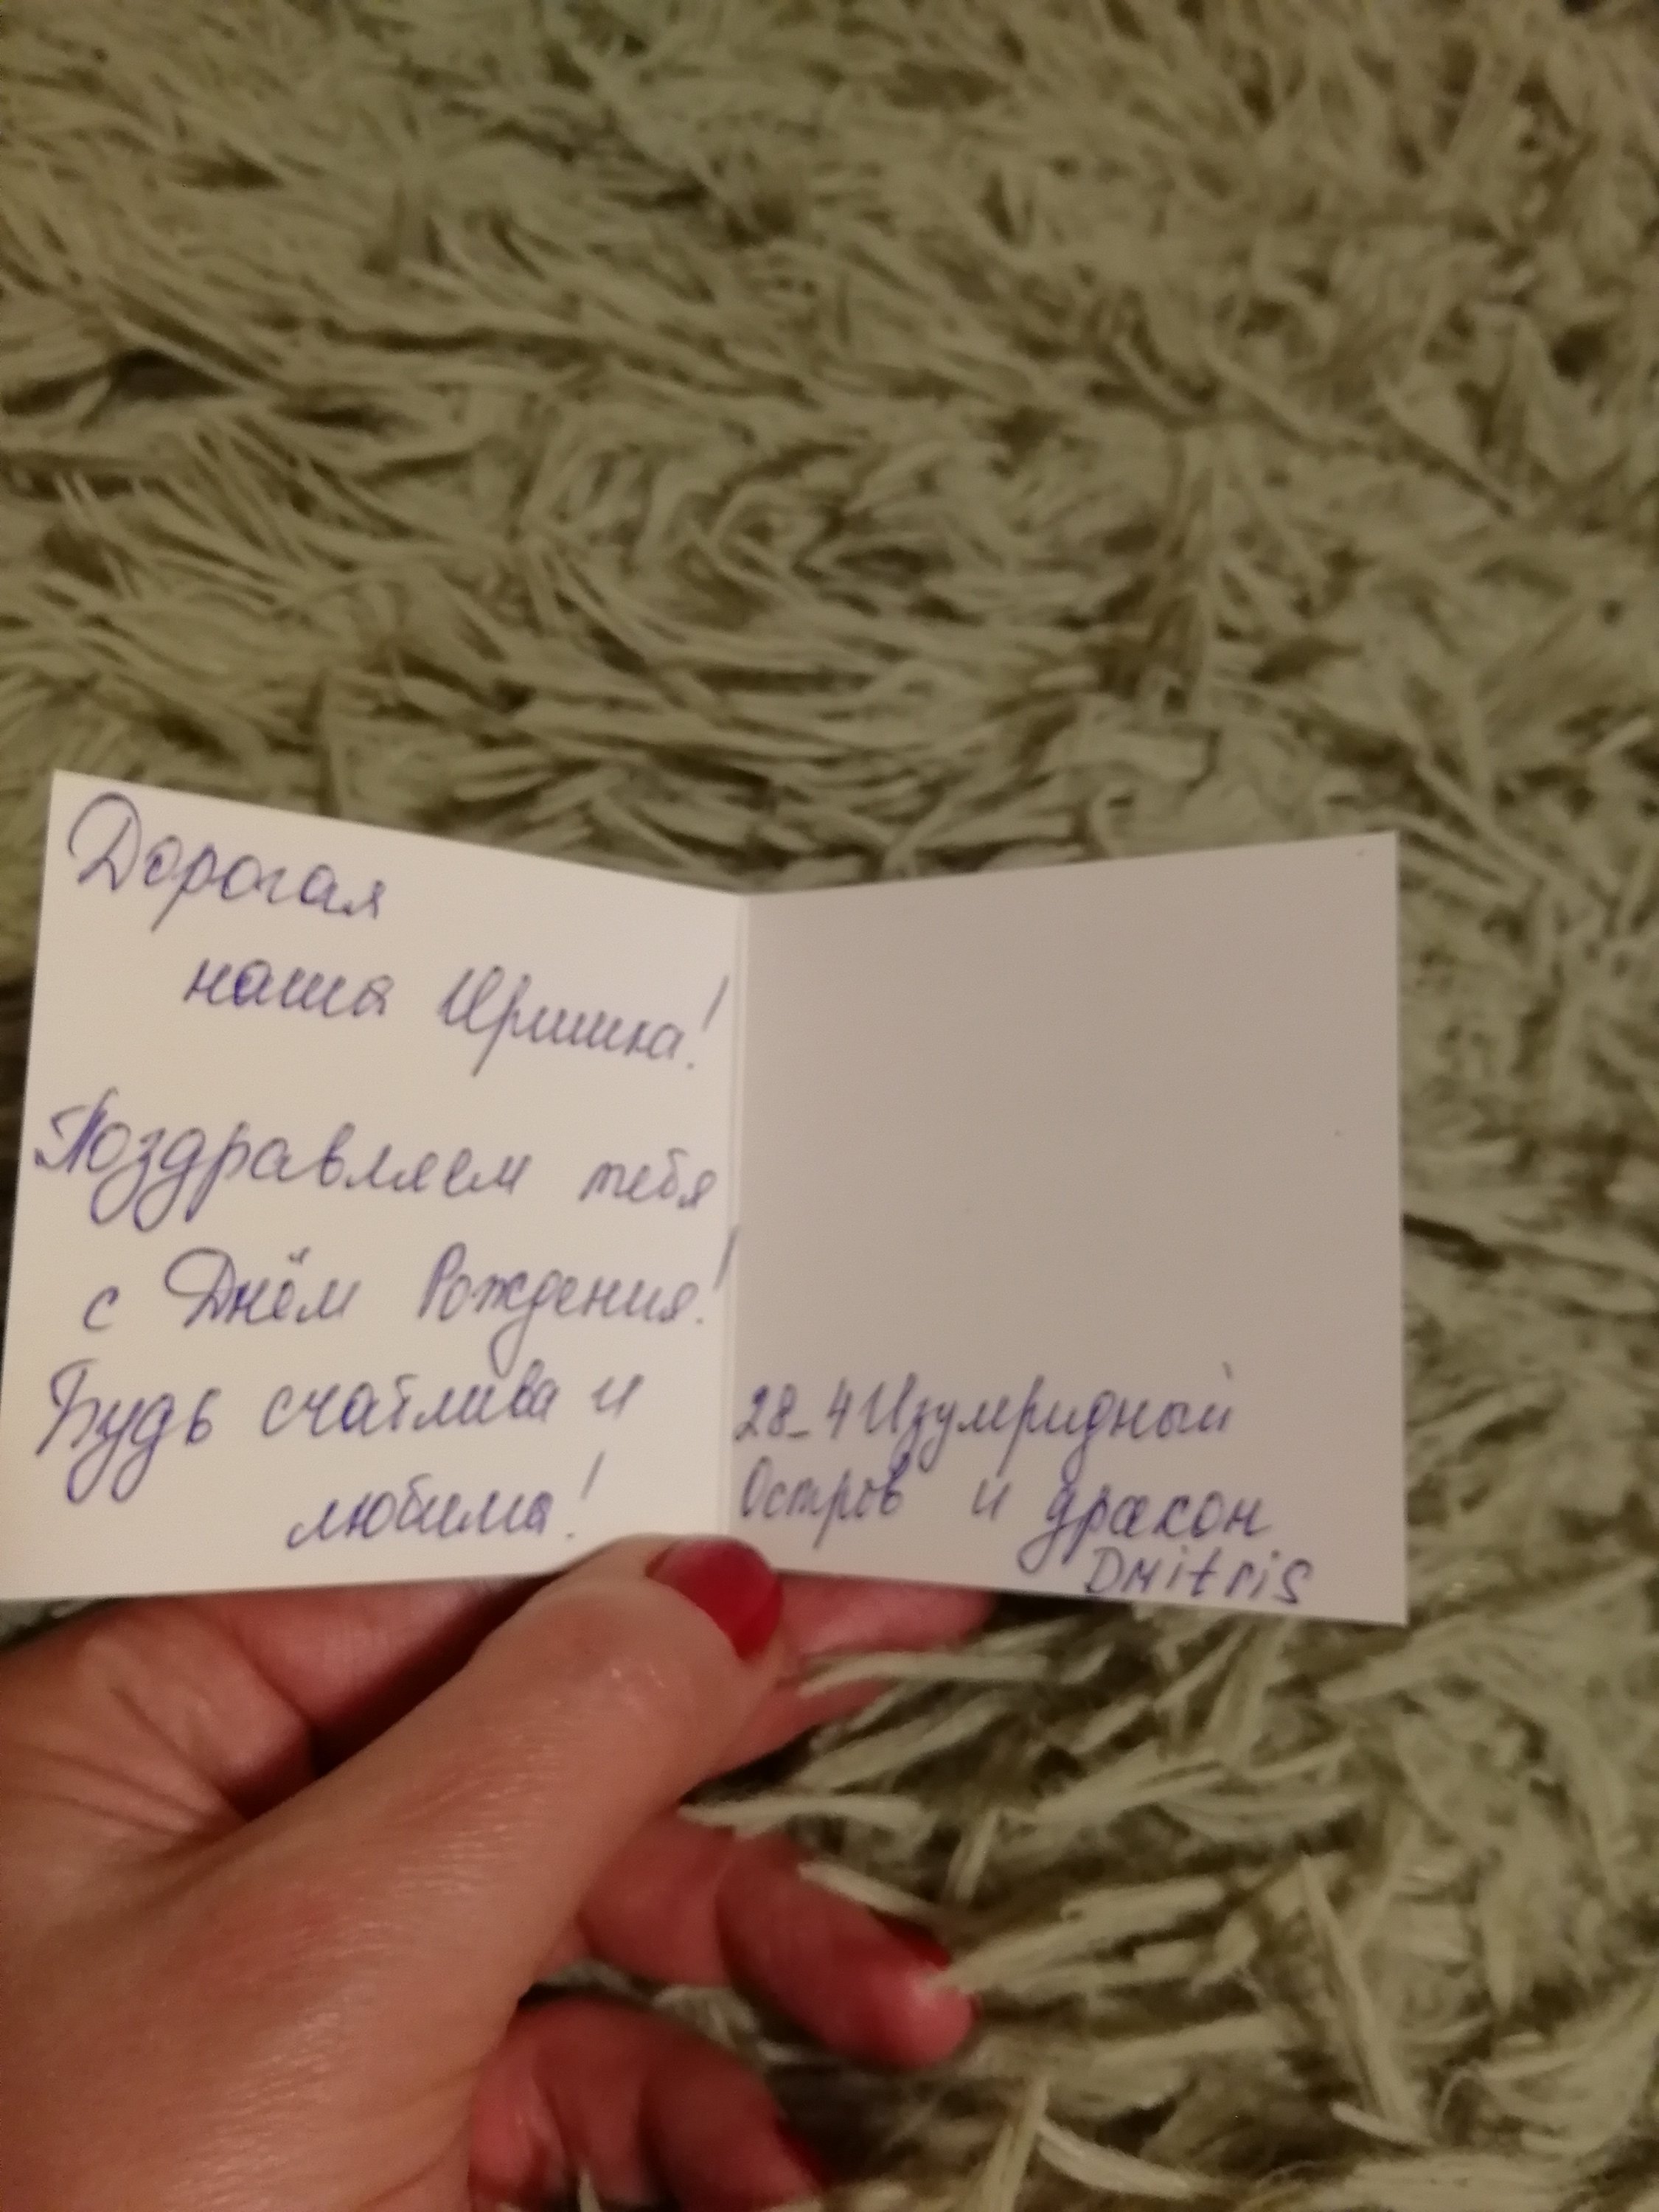 Дорогая
наша Иришка!
Поздравляем тебя
с Днём Рождения!
Будь счатлива и
любима!
28_4 Изумридный
Остров и дракон
Dmitris